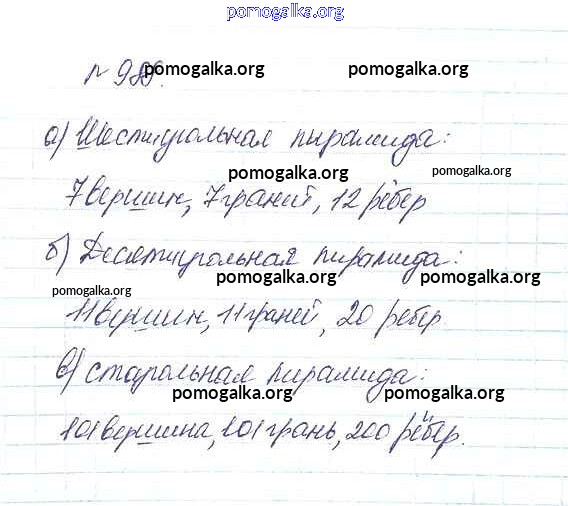 pomogalka.org
№ 989.
pomogalka.org
pomogalka.org pomogalka.org
а) Шестиугольная пирамида:
pomogalka.org pomogalka.org
7 вершин, 7 граней, 12 рёбер
б) Десятиугольная пирамида:
pomogalka.org pomogalka.org
pomogalka.org
11 вершин, 11 граней, 20 ребер
pomogalka.org pomogalka.org
в) стоугольная пирамида:
pomogalka.org pomogalka.org
101 вершина, 101 грань, 200 рёбер.
pomogalka.org pomogalka.org